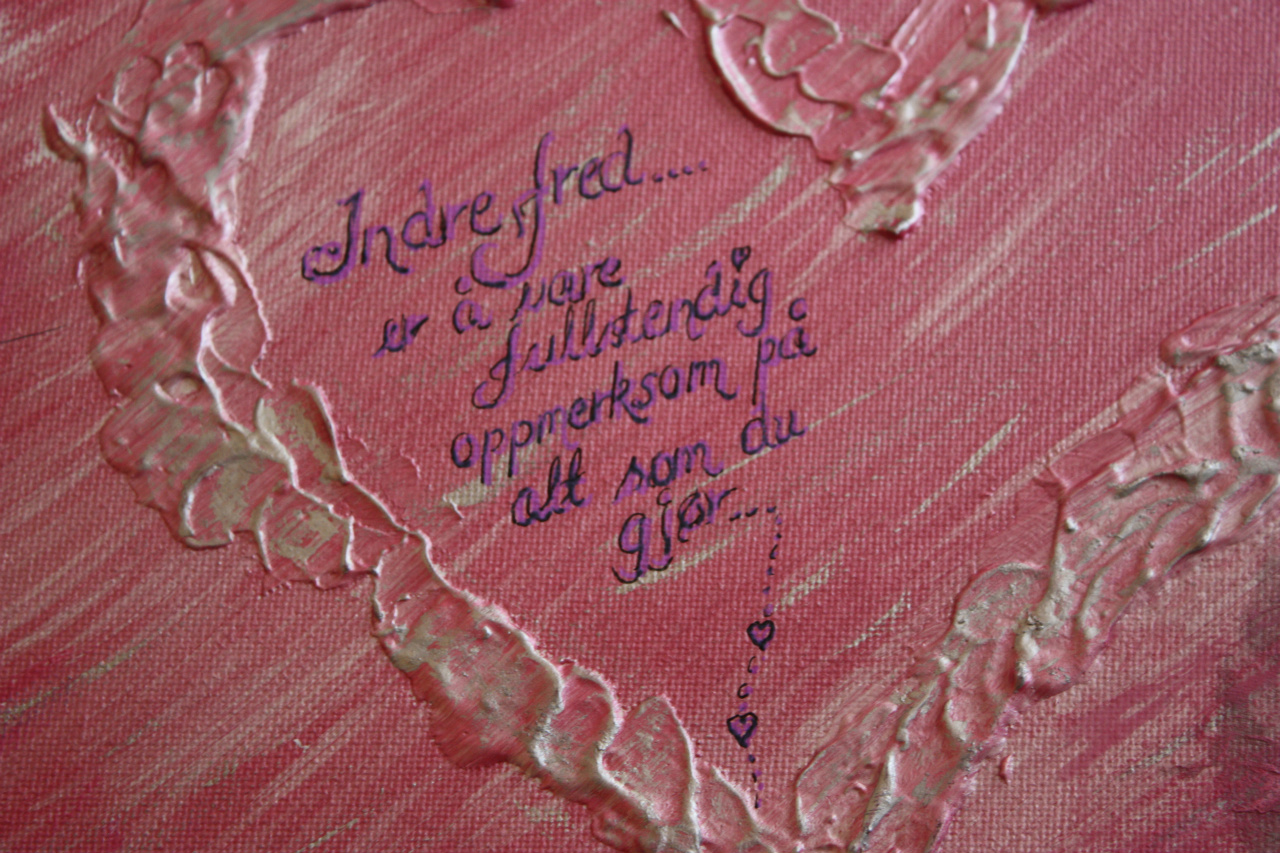 Indre fred....
er å være
fullstendig
oppmerksom på
alt som du
gjør...